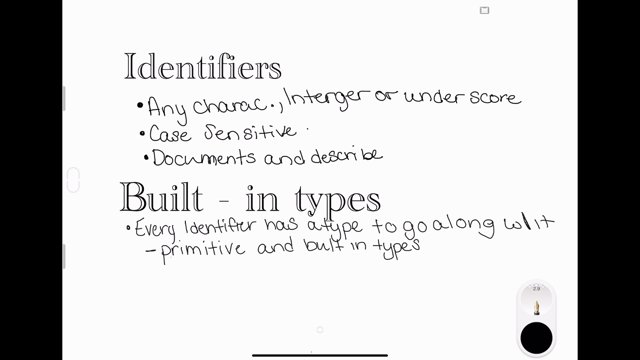 Identifiers
• Any charac., Interger or under score
• Case Sensitive
• Documents and describe
Built - in types
• Every Identifier has a type to go along w/it
- primitive and built in types
2.9